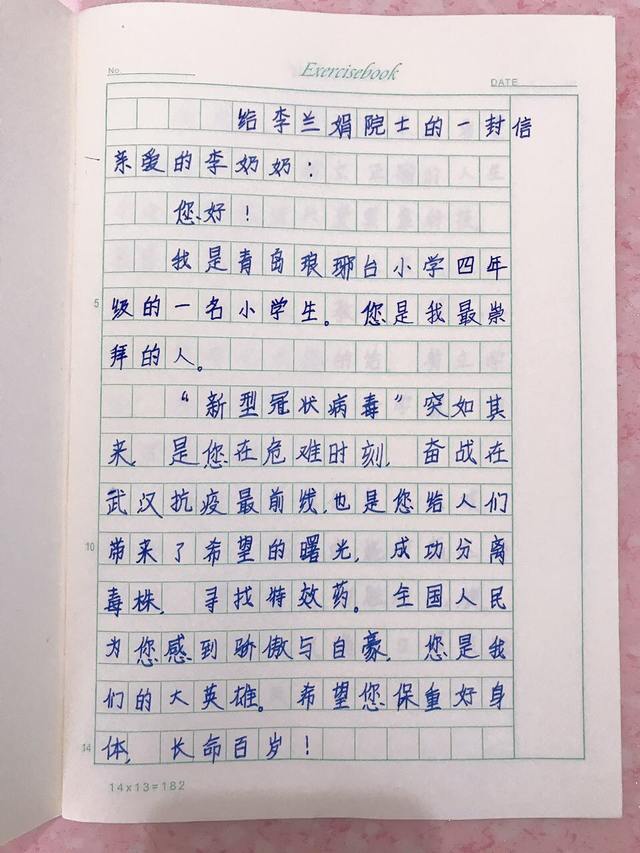 No.
Exercisebook
DATE
给李兰娟院士的一封信
亲爱的李奶奶：
您好！
我是青岛琅琊台小学四年
5 级的一名小学生。您是我最崇
拜的人。
“新型冠状病毒”突如其
来，是您在危难时刻，奋战在
武汉抗疫最前线，也是您给人们
10 带来了希望的曙光，成功分离
毒株，寻找特效药。全国人民
为您感到骄傲与自豪，您是我
们的大英雄。希望您保重好身
14 体，长命百岁！
14×13=182